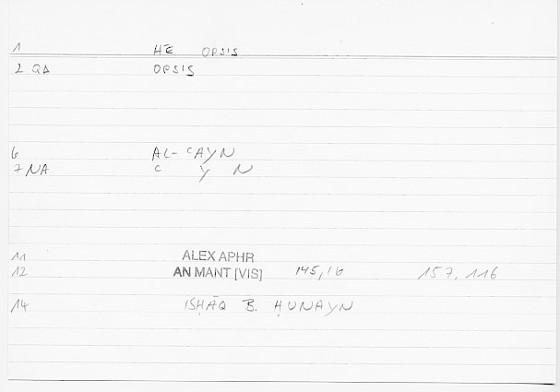 1 HĒ OPSIS
2 QA OPSIS
6 AL-ʿAYN
7 NA ʿ Y N
11 ALEX APHR
12 AN MANT [VIS] 145,16 157,116
14 ISḤĀQ B. ḤUNAYN